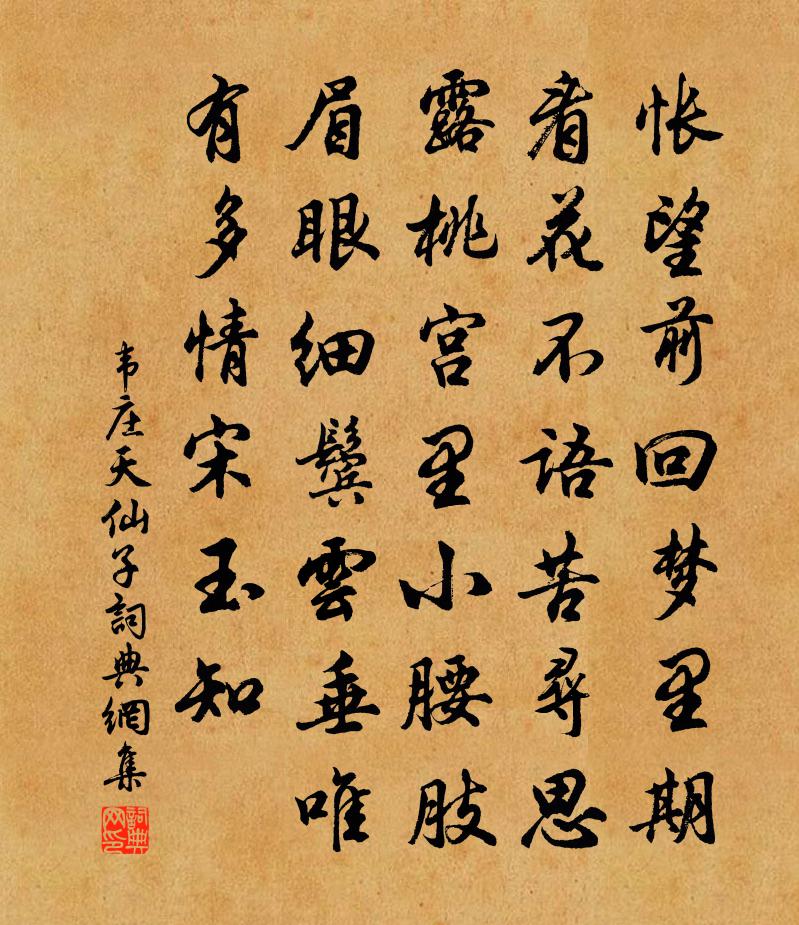 怅望前回梦里期
看花不语苦尋思
露桃宫里小腰肢
眉眼细鬓雲垂唯
有多情宋玉知
韦庄天仙子詞典網集
詞典网印